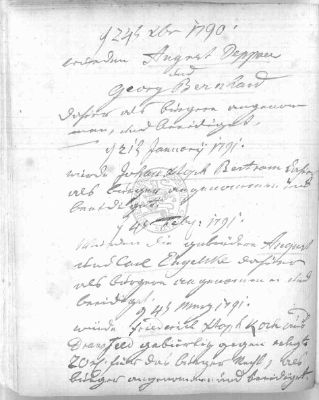 24t Xbr 1790.
worden August Deppen
und
Georg Bernhard
dahier als bürgere angenom
men, und beeidiget.
21t January 1791.
wird Johan Bertram
als bürger angenommen und
beeidiget.
4t 1791.
Wurden die gebrüdere August
und Carl Engelke dahier
als bürgere angenommen und
beeidiget.
4t März 1791.
wurde Friederich Koch aus
Dransfeld gebürtig gegen
für das bürger Recht, als
bürger angenommen und beeidiget.